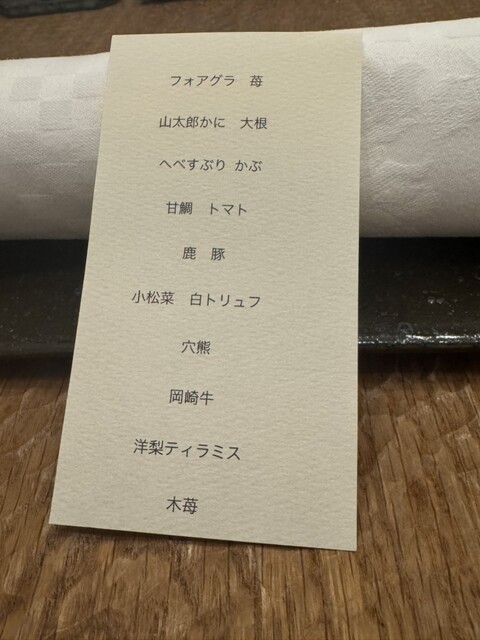 フォアグラ　苺
山太郎かに　大根
へべすぶり かぶ
甘鯛　トマト
鹿　豚
小松菜　白トリュフ
穴熊
岡崎牛
洋梨ティラミス
木苺